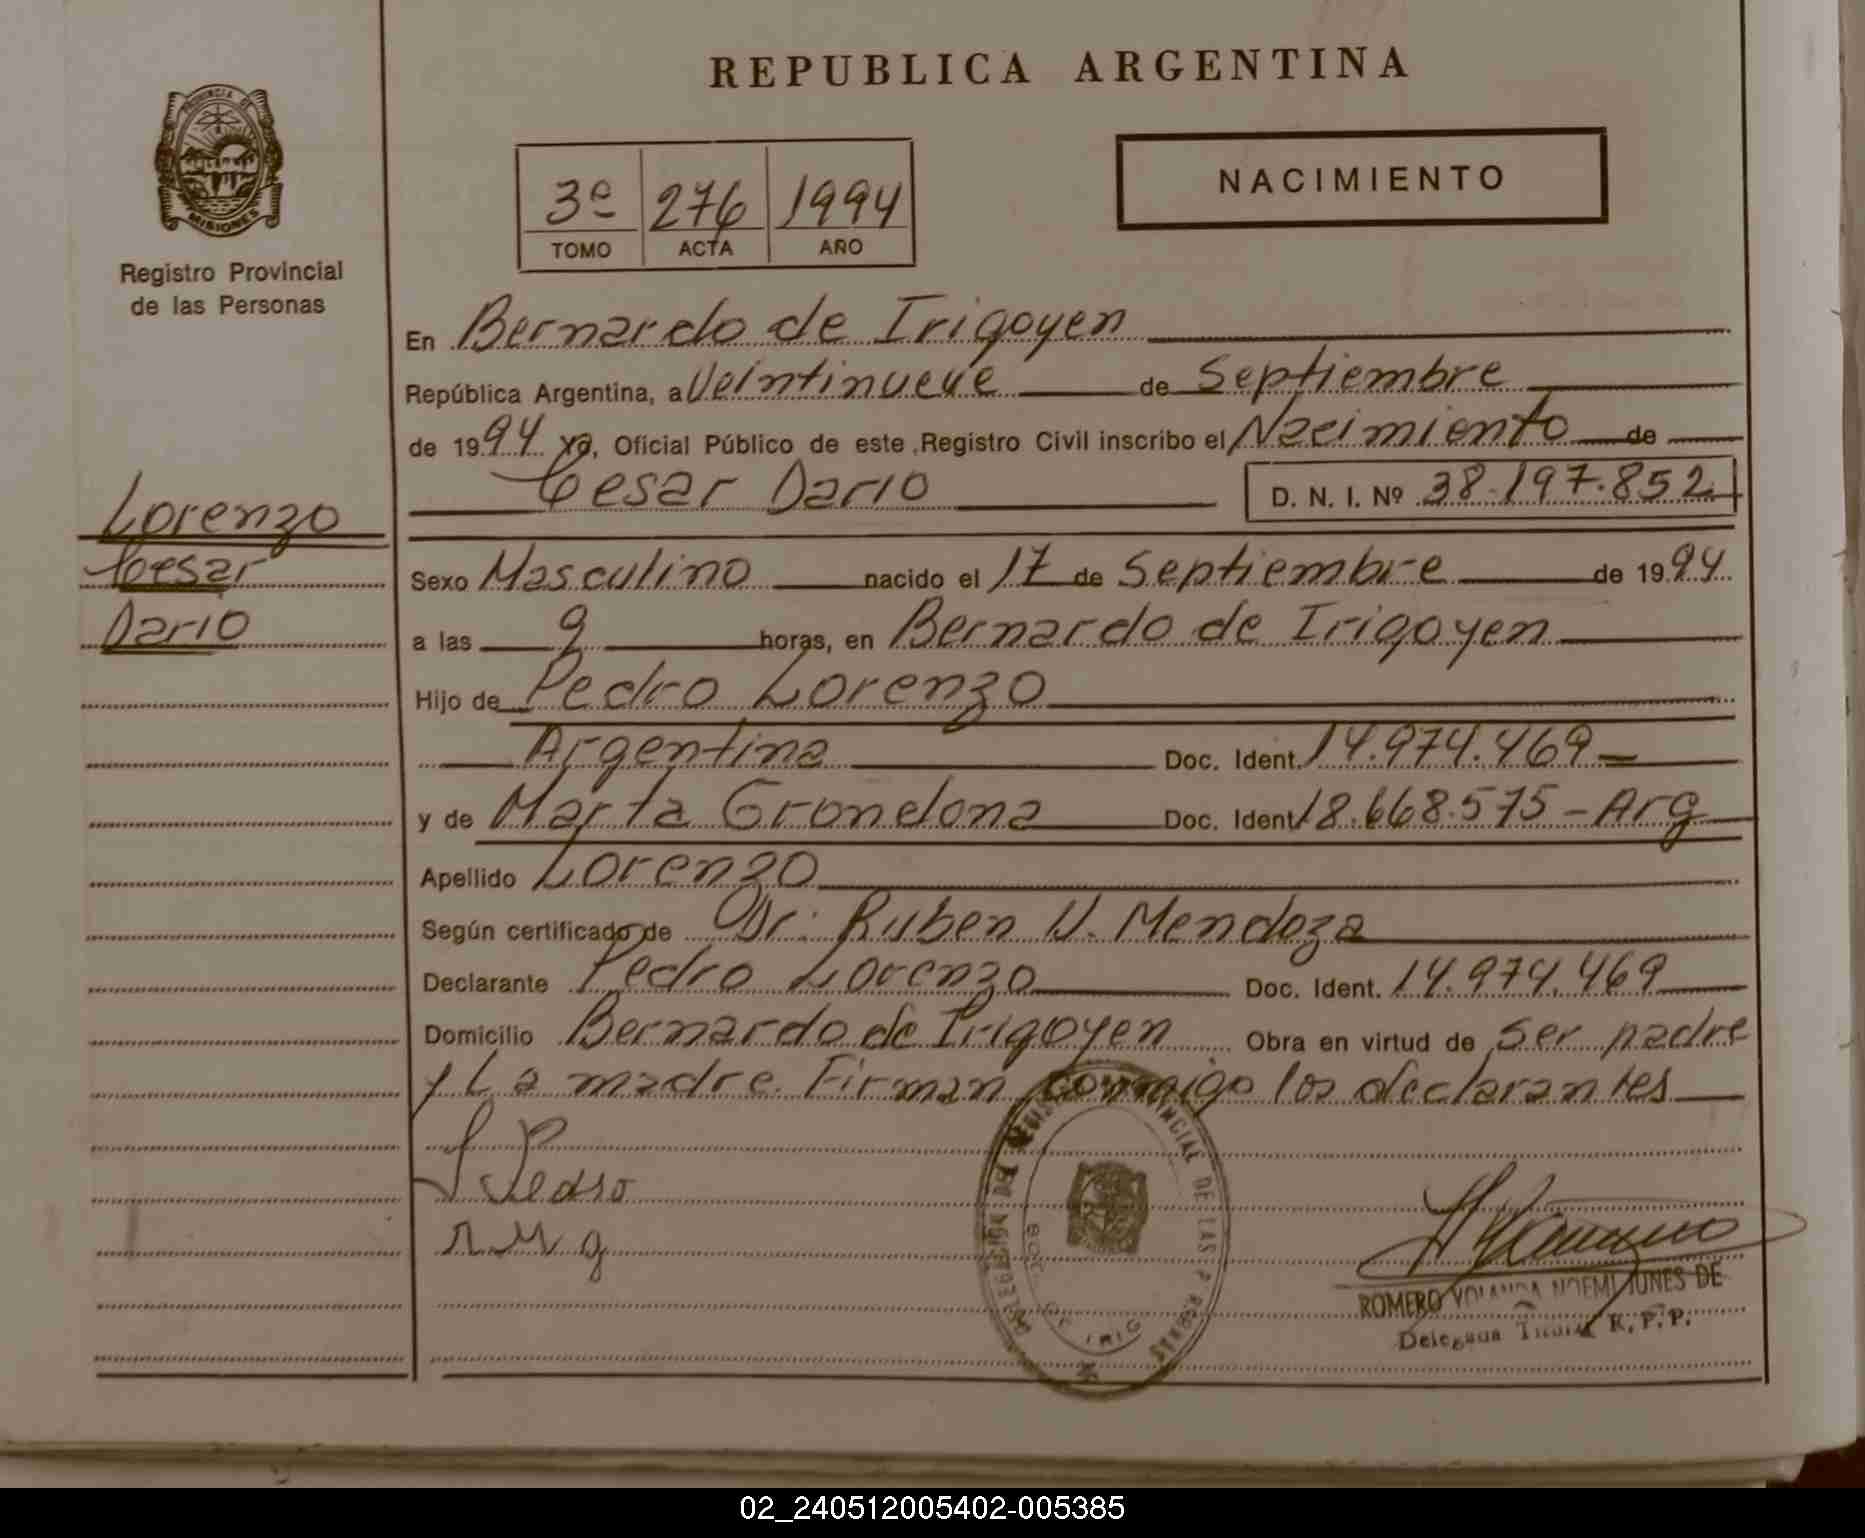 REPUBLICA ARGENTINA
PROVINCIA DE
MISIONES
Registro Provincial
de las Personas
NACIMIENTO
3º 276 1994
TOMO ACTA AÑO
En Bernardo de Irigoyen
República Argentina, a Veintinueve de Septiembre
de 1994 Yo, Oficial Público de este Registro Civil inscribo el Nacimiento de
Cesar Dario D. N. I. Nº 38.197.852
Lorenzo
Cesar
Dario
Sexo Masculino nacido el 17 de Septiembre de 1994
a las 9 horas, en Bernardo de Irigoyen
Hijo de Pedro Lorenzo
Argentina Doc. Ident. 14.974.469
y de Marta Gronelona Doc. Ident 18.668.575 - Arg
Apellido Lorenzo
Según certificado de Dr. Ruben W. Mendoza
Declarante Pedro Lorenzo Doc. Ident. 14.974.469
Domicilio Bernardo de Irigoyen Obra en virtud de ser padre
y La madre. Firman conmigo los declarantes
Pedro
ROMERO YOLANDA NOEMI JUNES DE
Delegada Titular R. P. P.
02_240512005402-005385